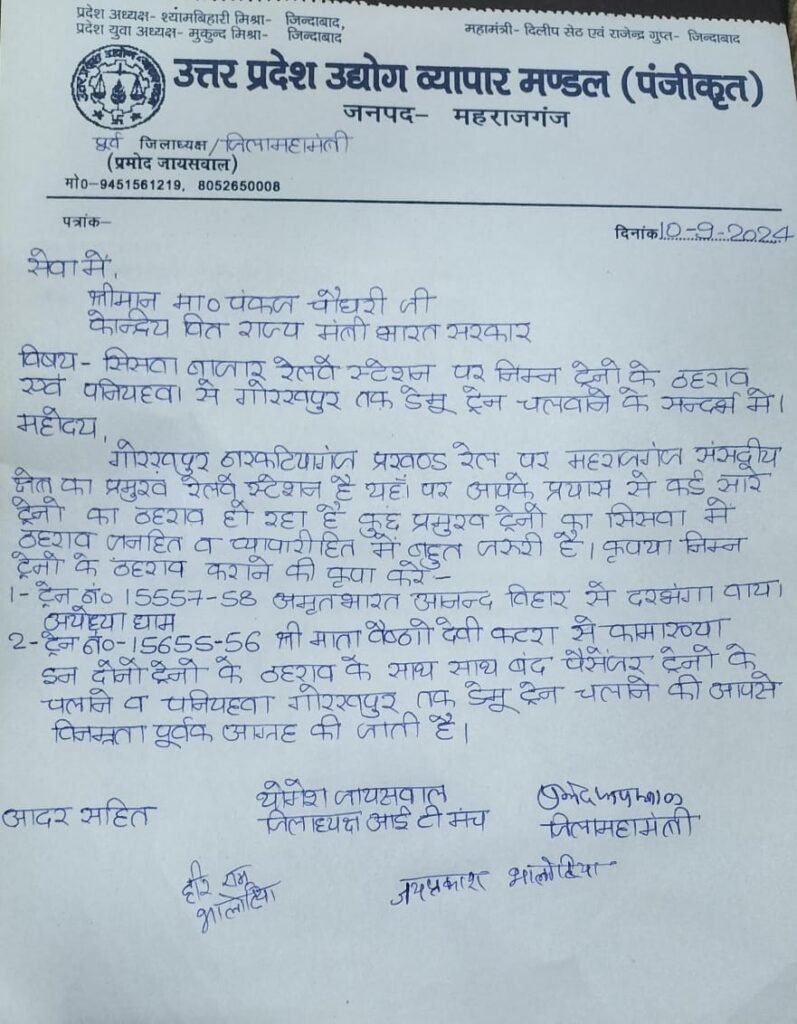 प्रदेश अध्यक्ष- श्यामबिहारी मिश्रा- जिन्दाबाद,
प्रदेश युवा अध्यक्ष- मुकुन्द मिश्रा- जिन्दाबाद
महामंत्री- दिलीप सेठ एवं राजेन्द्र गुप्त- जिन्दाबाद
उत्तर प्रदेश उद्योग व्यापार मण्डल (पंजीकृत)
जनपद- महराजगंज
पूर्व जिलाध्यक्ष/जिलामहामंत्री
(प्रमोद जायसवाल)
मो0-9451561219, 8052650008
पत्रांक-
दिनांक 10-9-2024
सेवा में,
श्रीमान मा० पंकज चौधरी जी
केन्द्रिय वित राज्य मंत्री भारत सरकार
विषय- सिसवा बाजार रेलवे स्टेशन पर निम्न ट्रेनो के ठहराव
एवं पनियहवा से गोरखपुर तक डेमू ट्रेन चलवाने के सन्दर्भ मे।
महोदय,
गोरखपुर नरकटियागंज प्रखण्ड रेल पर महराजगंज संसद्वीय
क्षेत्र का प्रमुख रेलवे स्टेशन है यहाँ पर आपके प्रयास से कई सारे
ट्रेनो का ठहराव हो रहा है कुछ प्रमुख ट्रेनो का सिसवा में
ठहराव जनहित व व्यापारीहित में बहुत जरुरी है। कृपया निम्न
ट्रेनो के ठहराव कराने की कृपा करे-
1- ट्रेन नं० 15557-58 अमृतभारत आनन्द विहार से दरभंगा वाया
अयोध्या धाम
2- ट्रेन न०-15655-56 श्री माता वैष्णो देवी कटरा से कामाख्या
इन दोनो ट्रेनो के ठहराव के साथ साथ बंद पैसेंजर ट्रेनो के
चलाने व पनियहवा गोरखपुर तक डेमू ट्रेन चलाने की आपसे
विनम्रता पूर्वक आग्रह की जाती है।
आदर सहित
योगेश जायसवाल
जिलाध्यक्ष आई टी मंच
जिलामहामंत्री
राम
भालोटिया
जयप्रकाश भालोटिया